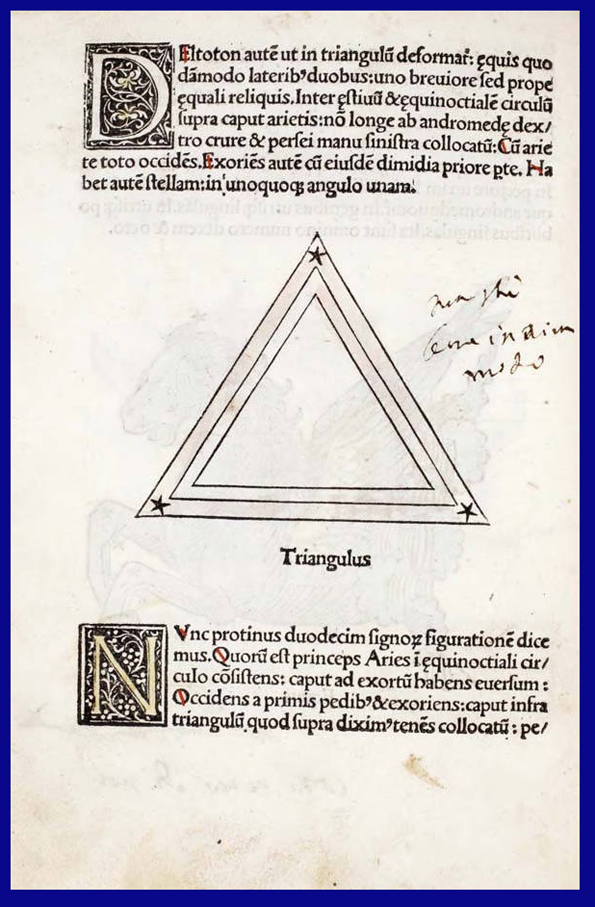 DEltoton autē ut in triangulū deformat᷑: ęquis quo
dāmodo lateribꝰ duobus:uno breuiore sed prope
ęquali reliquis.Inter ęstiuū &ęquinoctialē circulū
supra caput arietis:nō longe ab andromedę dex/
tro crure & persei manu sinistra collocatū:Cū arie
te toto occidēs.Exoriēs autē cū eiusdē dimidia priore ꝑte. Ha
bet autē stellam:in unoquoqꝫ angulo unam.
modo
Triangulus
NVnc protinus duodecim signoꝝ figurationē dice
mus.Quorū est princeps Aries ī ęquinoctiali cir/
culo cōsistens: caput ad exortū habens euersum :
Occidens a primis pedibꝰ &exoriens:caput infra
triangulū quod supra diximꝰ tenēs collocatū : pe/